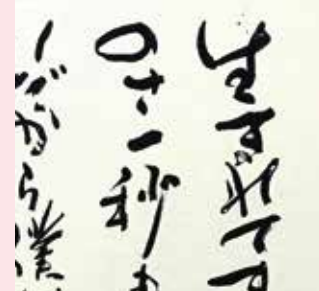 生まれて
のさ一秒
だから僕